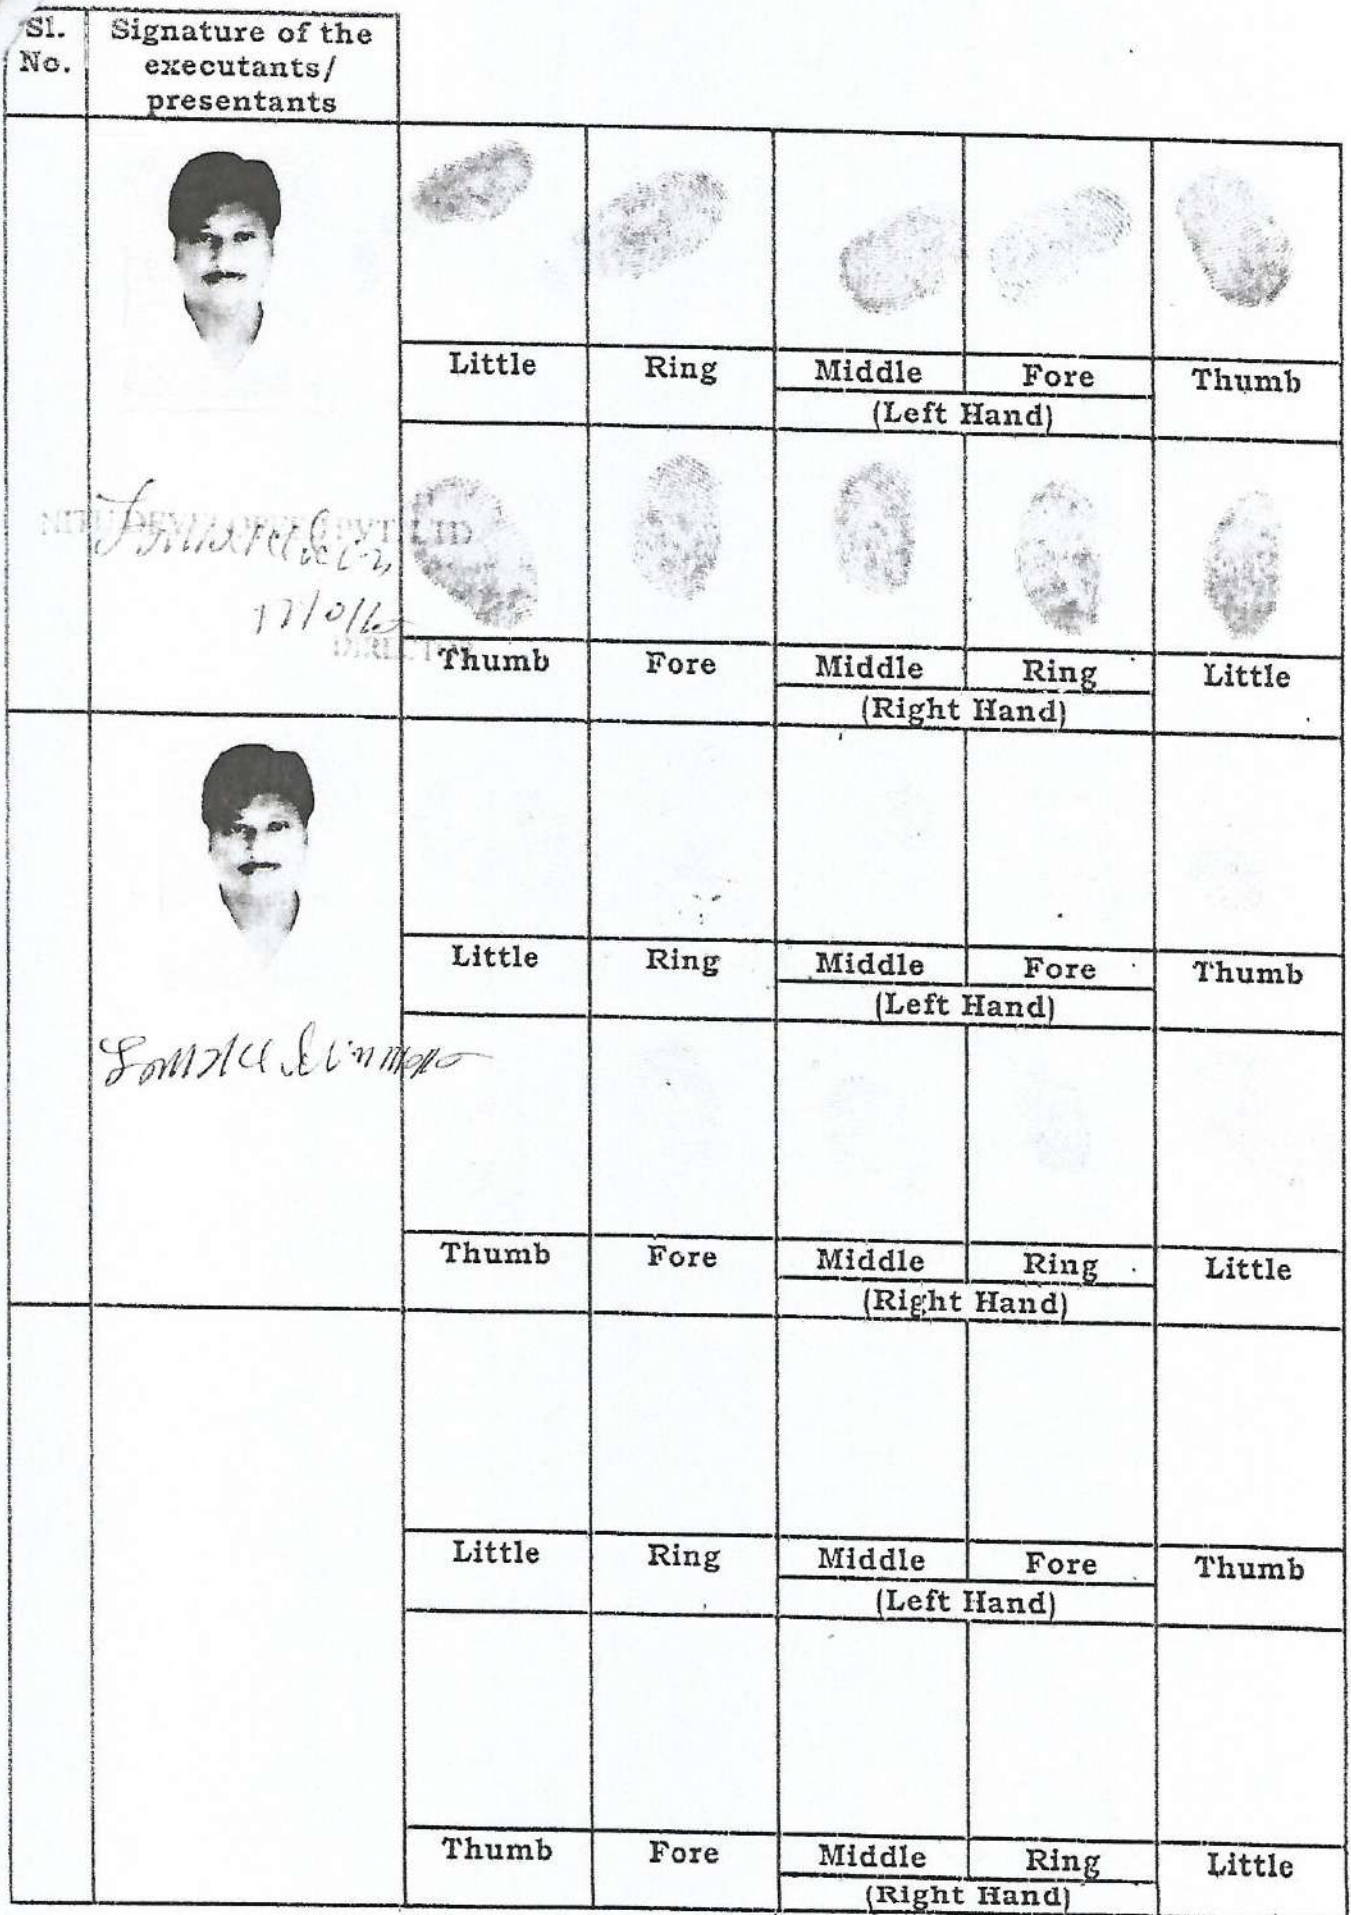 Sl.
No.
Signature of the
executants/
presentants
Little Ring Middle Fore Thumb
(Left Hand)
PVT LTD
DIRECTOR
Thumb Fore Middle Ring Little
(Right Hand)
Little Ring Middle Fore Thumb
(Left Hand)
Thumb Fore Middle Ring Little
(Right Hand)
Little Ring Middle Fore Thumb
(Left Hand)
Thumb Fore Middle Ring Little
(Right Hand)